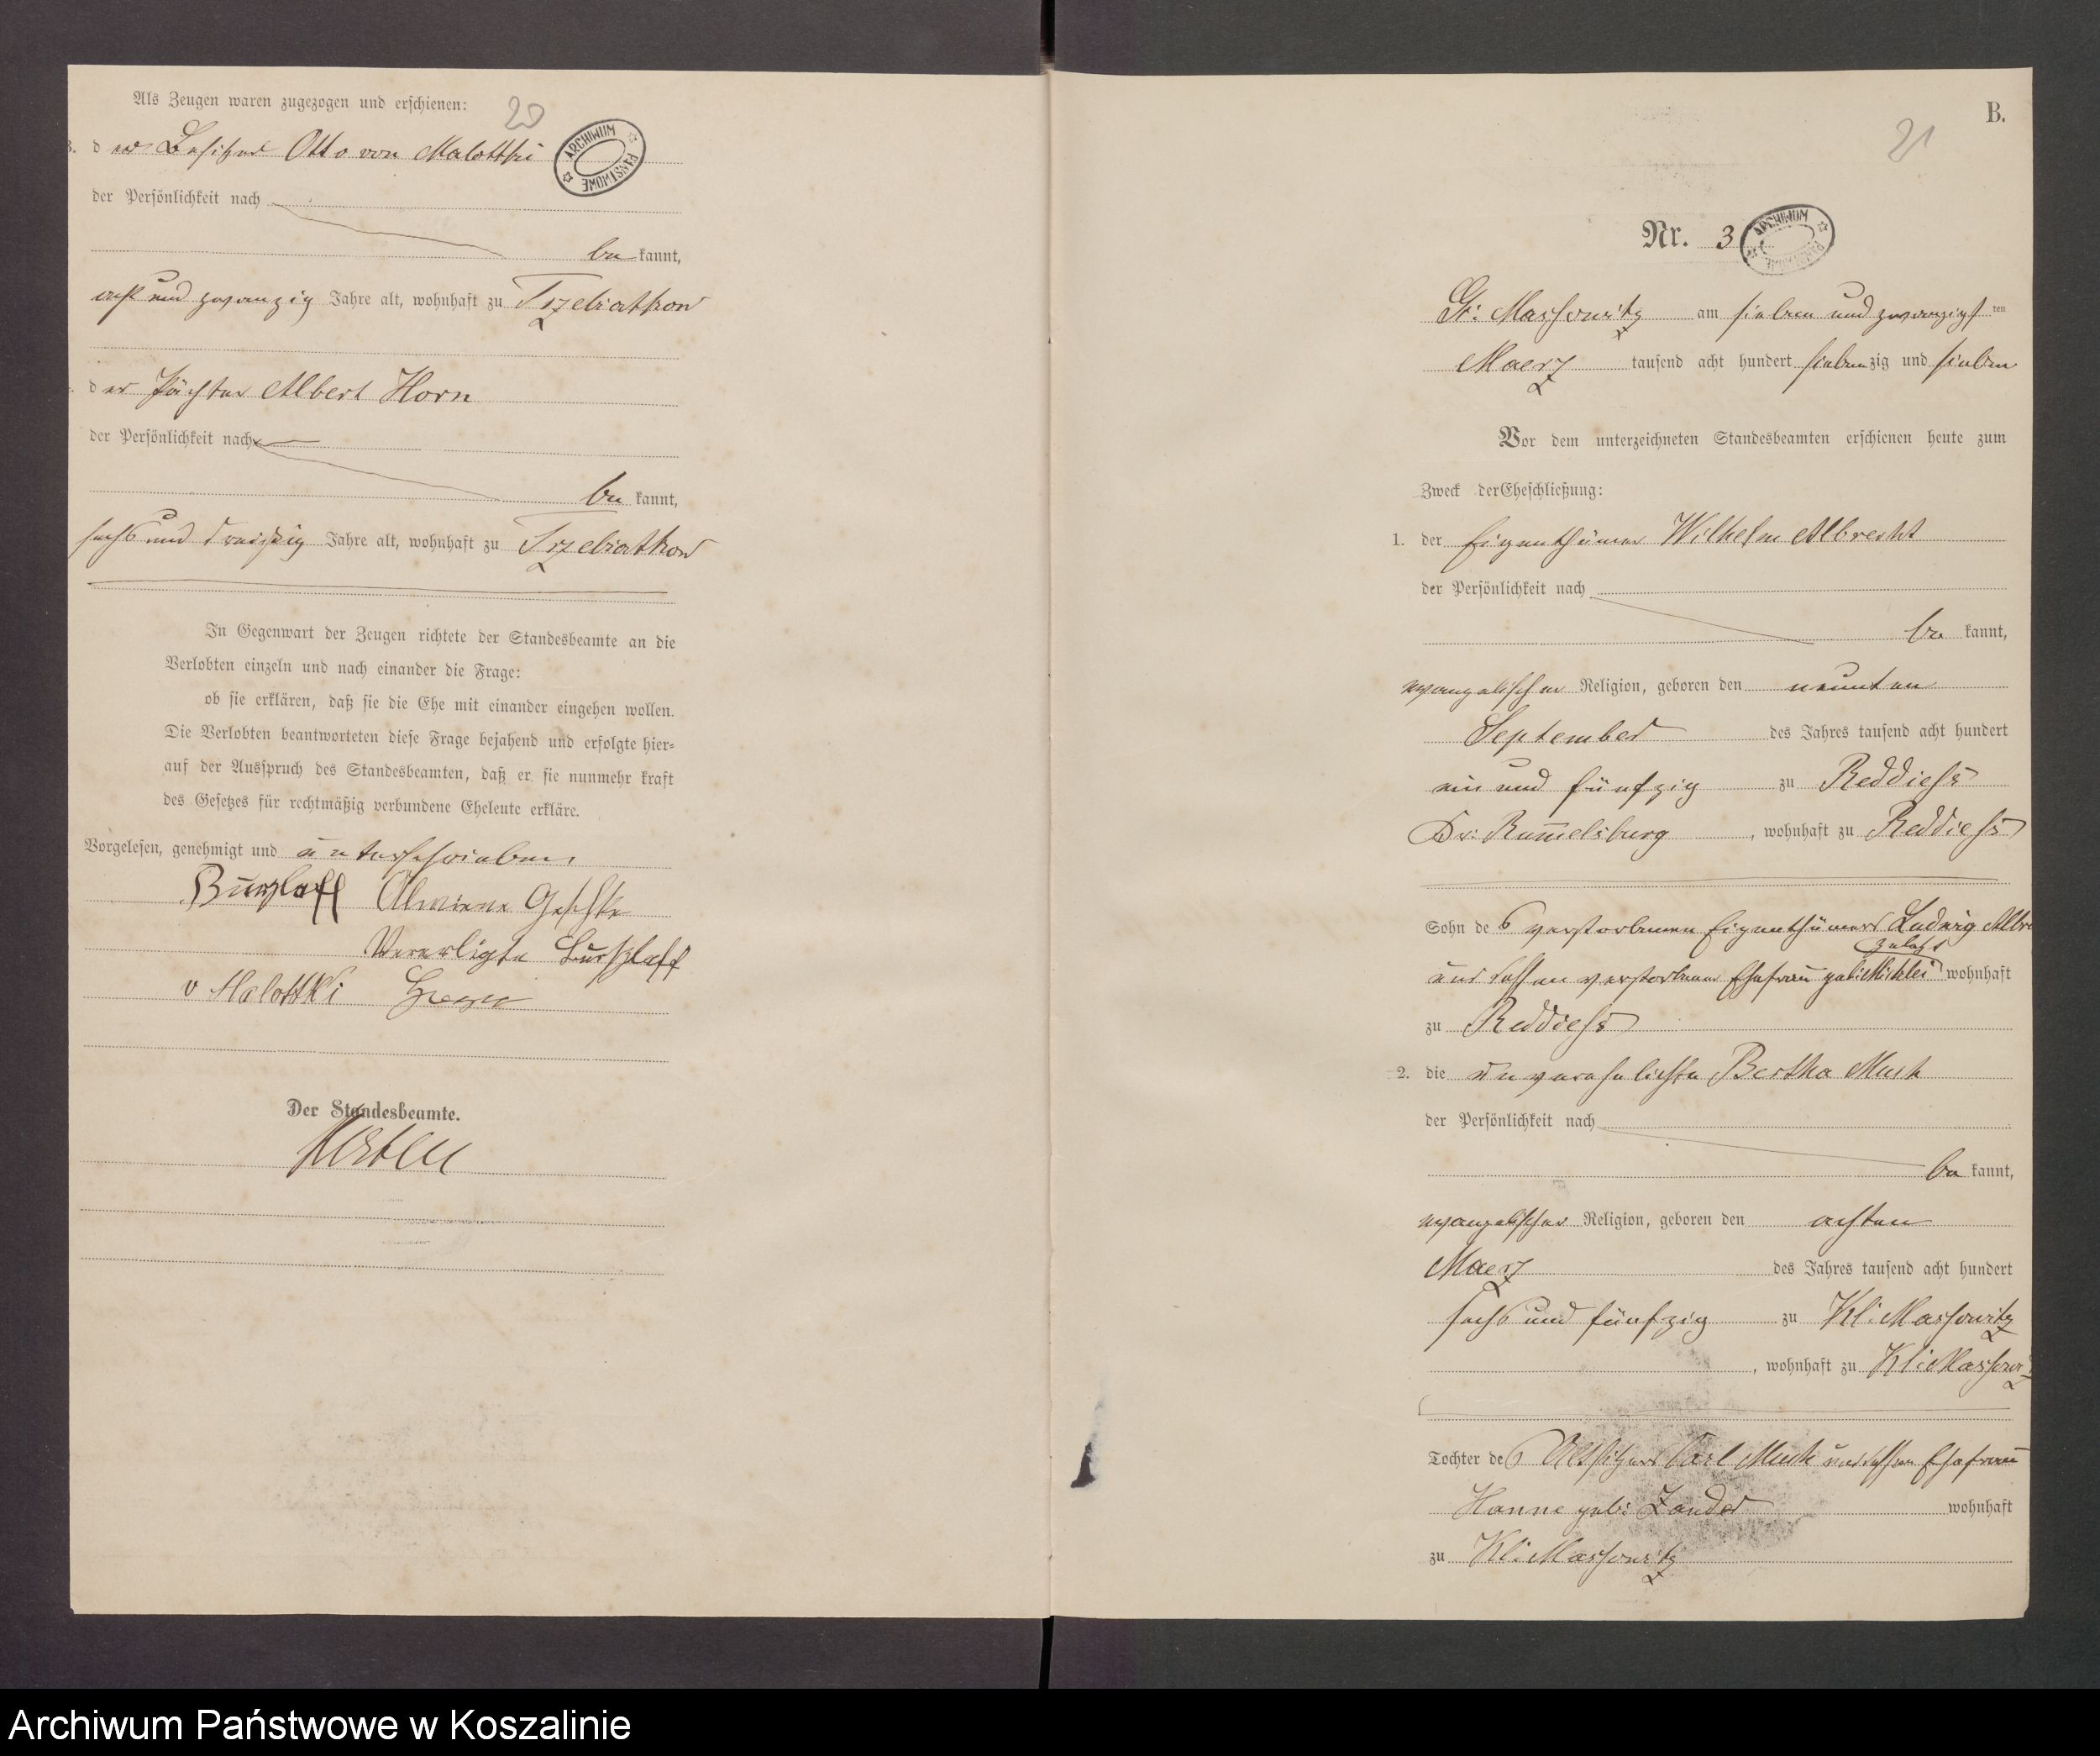 20
Als Zeugen waren zugezogen und erschienen:
3. der Besitzer Otto von Malottki
ARCHIWUM PAŃSTWOWE
der Persönlichkeit nach
bekannt,
acht und zwanzig Jahre alt, wohnhaft zu Trzebiatkow
der Pächter Albert Horn
der Persönlichkeit nach
bekannt,
sechs und dreißig Jahre alt, wohnhaft zu Trzebiatkow
In Gegenwart der Zeugen richtete der Standesbeamte an die
Verlobten einzeln und nach einander die Frage:
ob sie erklären, daß sie die Ehe mit einander eingehen wollen.
Die Verlobten beantworteten diese Frage bejahend und erfolgte hier-
auf der Ausspruch des Standesbeamten, daß er sie nunmehr kraft
des Gesetzes für rechtmäßig verbundene Eheleute erkläre.
Vorgelesen, genehmigt und unterschrieben
Burzlaff
v Malottki
Der Standesbeamte.
B.
21
Nr. 3
ARCHIWUM PAŃSTWOWE
Gr: Massowitz am sieben und zwanzigsten
Maerz tausend acht hundert siebenzig und sieben
Vor dem unterzeichneten Standesbeamten erschienen heute zum
Zweck der Eheschließung:
1. der Eigenthümer Wilhelm Albrecht
der Persönlichkeit nach
bekannt,
evangelischer Religion, geboren den neunten
September des Jahres tausend acht hundert
ein und fünfzig zu Reddiess
Kr: Rummelsburg, wohnhaft zu Reddiess
Sohn des verstorbenen Eigenthümers Ludwig Albre
zuletzt
und dessen verstorbenen Ehefrau geb: wohnhaft
zu Reddiess
2. die unverehelichte Bertha Muck
der Persönlichkeit nach
bekannt,
evangelischer Religion, geboren den achten
Maerz des Jahres tausend acht hundert
sechs und fünfzig zu Kl: Massowitz
, wohnhaft zu Kl: Massowitz
Tochter des Altsitzers Carl Muck und dessen Ehefrau
Hanne geb: Zander wohnhaft
zu Kl: Massowitz
Archiwum Państwowe w Koszalinie